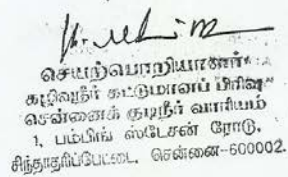 செயற்பொறியாளர்
கழிவுநீர் கட்டுமானப் பிரிவு
சென்னைக் குடிநீர் வாரியம்
1, பம்பிங் ஸ்டேசன் ரோடு,
சிந்தாதரிப்பேட்டை, சென்னை-600002.